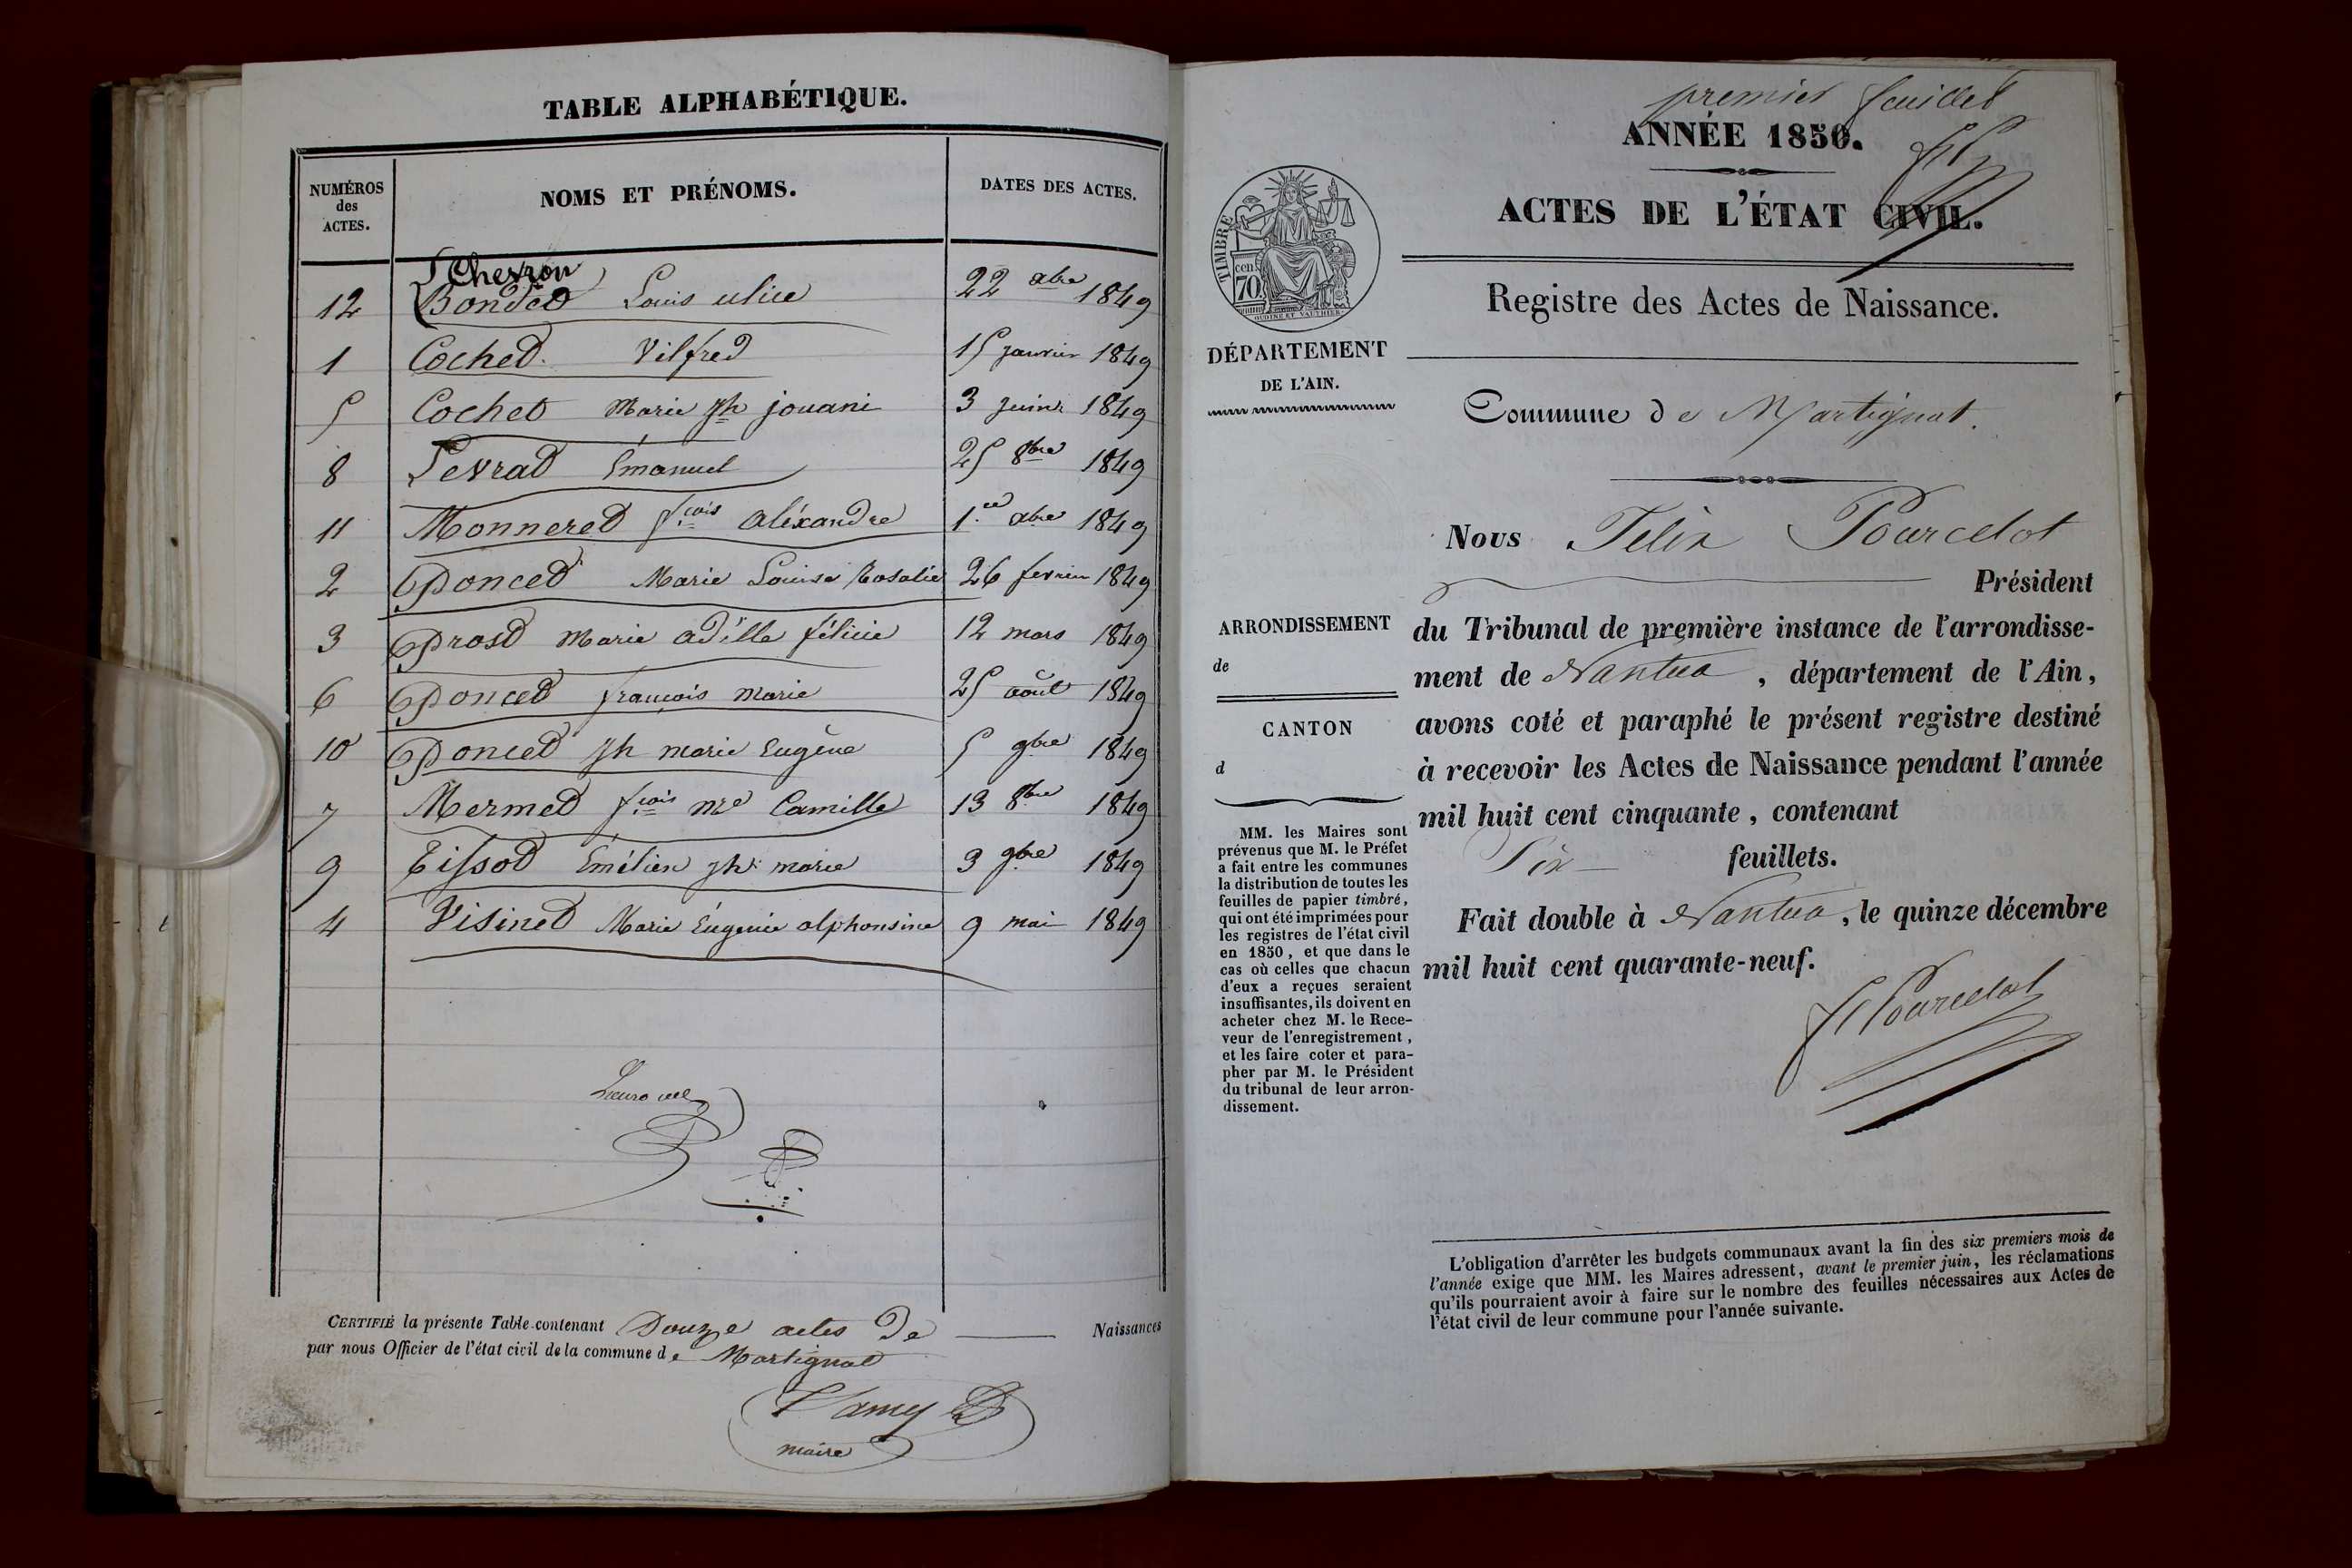 TABLE ALPHABÉTIQUE.
NUMÉROS des ACTES. NOMS ET PRÉNOMS. DATES DES ACTES.
12 Bondet Louis ulice 22 xbre 1849
1 Cochet Vilfred 15 janvier 1849
5 Cochet Marie jh jouani 3 juin 1849
8 Levrat Émanuel 25 8bre 1849
11 Monneret fcois aléxandre 1er xbre 1849
2 Poncet Marie Louise Rosalie 26 fevrier 1849
3 Prost Marie adélle félicie 12 mars 1849
6 Poncet françois marie 25 août 1849
10 Poncet jh marie Eugène 5 9bre 1849
7 Mermet fcois mie Camille 13 8bre 1849
9 Tissot Emélien jh marie 3 9bre 1849
4 Visinet Marie Eugenie alphonsine 9 mai 1849
CERTIFIÉ la présente Table contenant Douze actes de Naissances
par nous Officier de l'état civil de la commune de Martignat
maire
premier feuillet
ANNÉE 1850.
ACTES DE L'ÉTAT CIVIL.
TIMBRE
cen. 70
OUDINE ET VAUTHIER
Registre des Actes de Naissance.
DÉPARTEMENT
DE L'AIN.
Commune de Martignat.
Nous Félix Pourcelot
Président
ARRONDISSEMENT
de
CANTON
d
du Tribunal de première instance de l'arrondisse-
ment de Nantua, département de l'Ain,
avons coté et paraphé le présent registre destiné
à recevoir les Actes de Naissance pendant l'année
mil huit cent cinquante, contenant
Six feuillets.
Fait double à Nantua, le quinze décembre
mil huit cent quarante-neuf.
F Pourcelot
MM. les Maires sont
prévenus que M. le Préfet
a fait entre les communes
la distribution de toutes les
feuilles de papier timbré,
qui ont été imprimées pour
les registres de l'état civil
en 1850, et que dans le
cas où celles que chacun
d'eux a reçues seraient
insuffisantes, ils doivent en
acheter chez M. le Rece-
veur de l'enregistrement,
et les faire coter et para-
pher par M. le Président
du tribunal de leur arron-
dissement.
L'obligation d'arrêter les budgets communaux avant la fin des six premiers mois de
l'année exige que MM. les Maires adressent, avant le premier juin, les réclamations
qu'ils pourraient avoir à faire sur le nombre des feuilles nécessaires aux Actes de
l'état civil de leur commune pour l'année suivante.